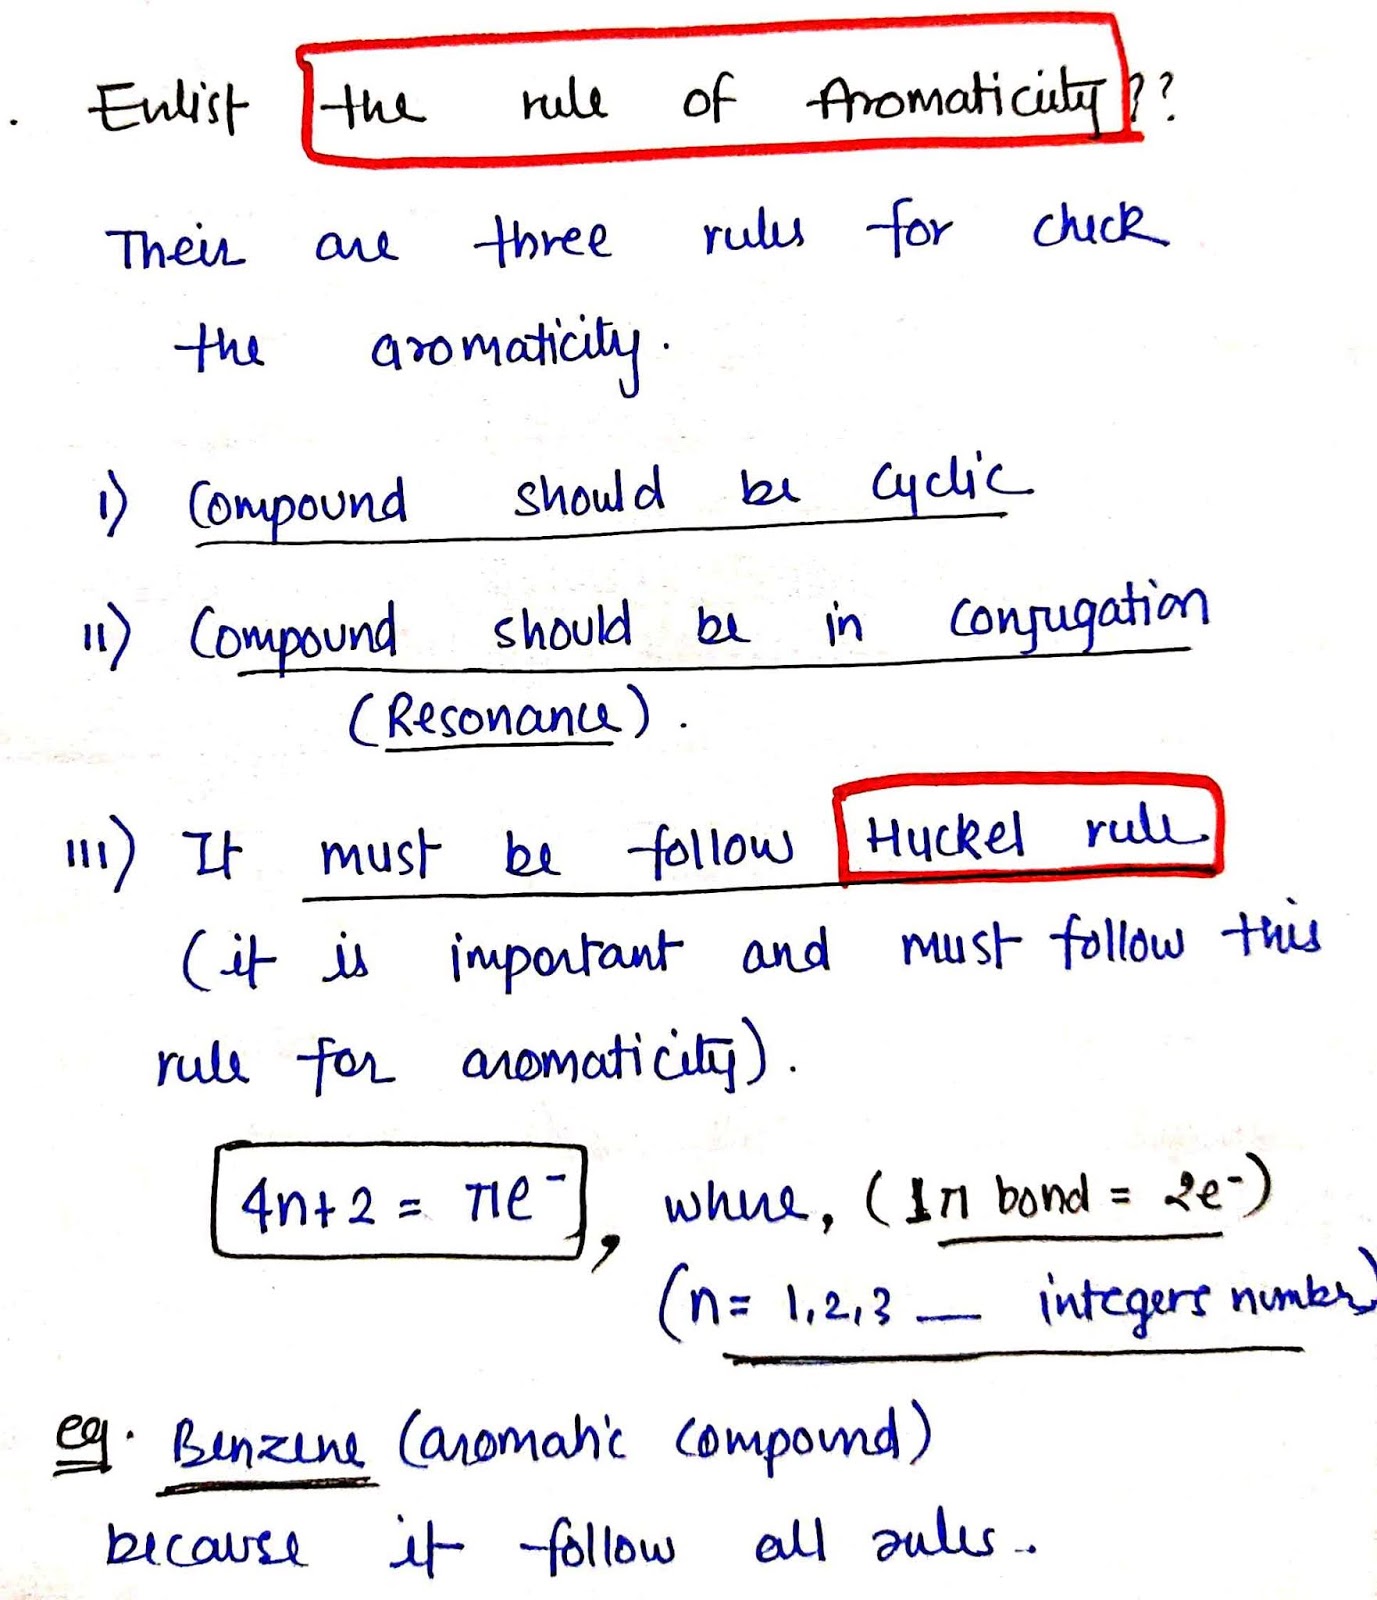 . Enlist the rule of Aromaticity??
Their are three rules for check
the aromaticity.
i) Compound should be cyclic
ii) Compound should be in conjugation
(Resonance).
iii) It must be follow Huckel rule
(it is important and must follow this
rule for aromaticity).
4n+2 = πe⁻, where, (1π bond = 2e⁻)
(n= 1,2,3 — integers number)
eg. Benzene (aromatic compound)
because it follow all rules.